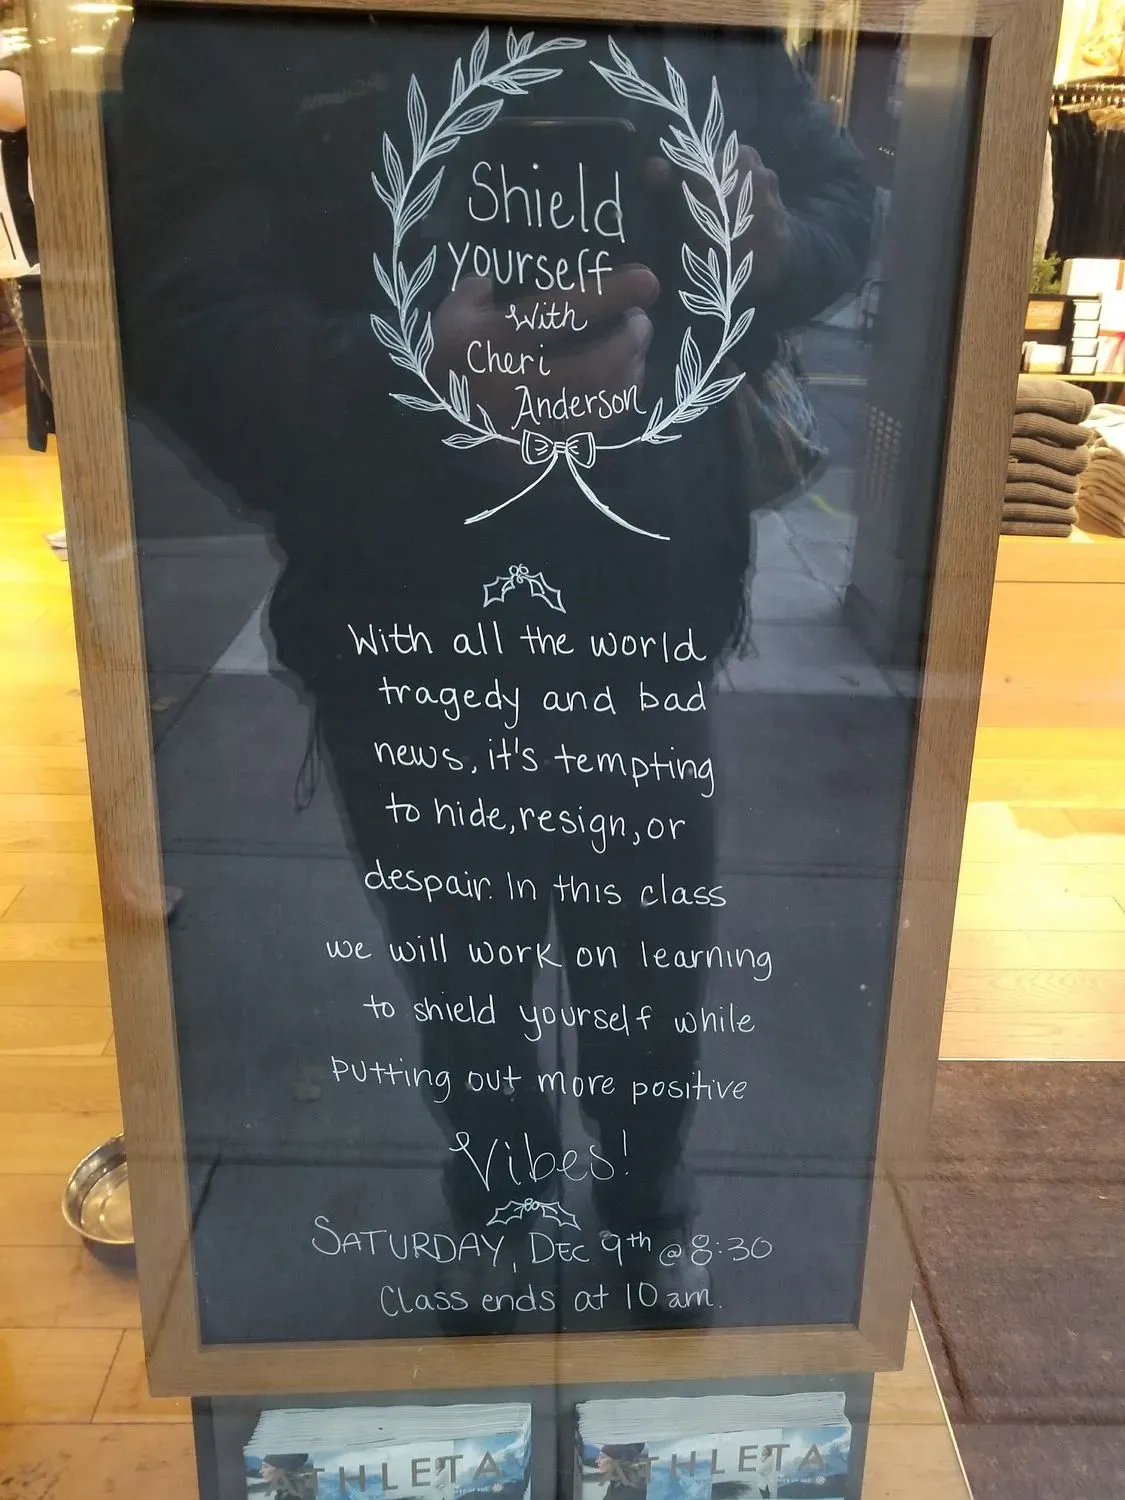 Shield
yourself
With
Cheri
Anderson
With all the world
tragedy and bad
news, it's tempting
to hide, resign, or
despair. In this class
we will work on learning
to shield yourself while
putting out more positive
Vibes!
SATURDAY, DEC 9th @ 8:30
Class ends at 10 am.
ATHLETA
ATHLETA